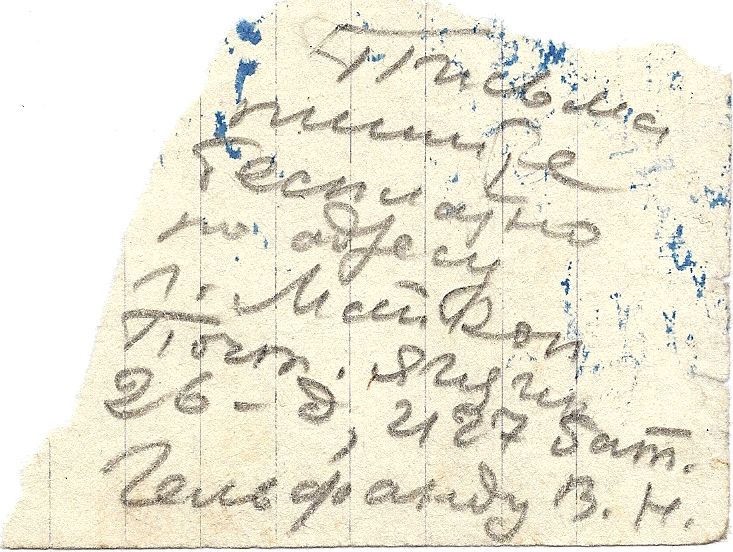 Письма
пишите
бесплатно
по адресу
г. Майкоп
Почт. ящик
26-д, 2127 бат.
Гельфанду В. Н.